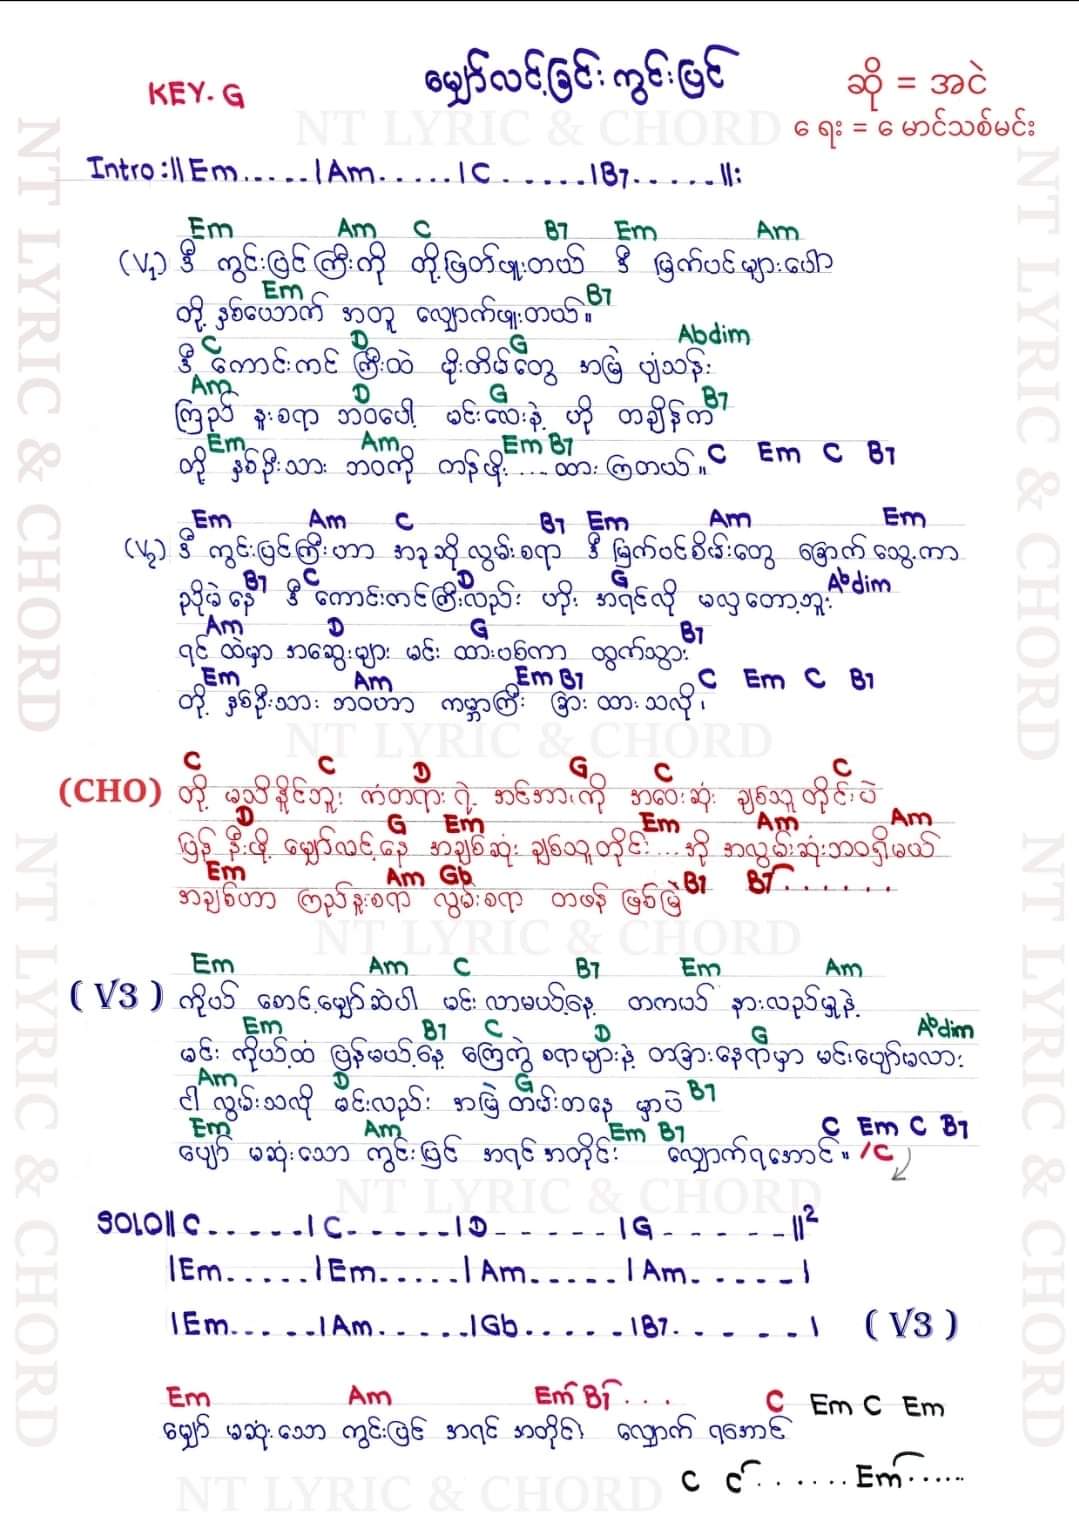 KEY-G
မျှော်လင့်ခြင်း ကွင်းပြင်
ဆို = အငဲ
ရေး = မောင်သစ်မင်း
NT LYRIC & CHORD
Intro :|| Em.....| Am......| C ......| B7......||:
Em Am C B7 Em Am
(V1) ဒီ ကွင်းပြင်ကြီးကို တို့ဖြတ်ဖူးတယ် ဒီ မြက်ပင်များပေါ်
Em B7
တို့ နှစ်ယောက် အတူ လျှောက်ဖူးတယ်။
C D G Abdim
ဒီ ကောင်းကင် ကြီးထဲ မိုးတိမ်တွေ အမြဲ ပျံသန်း
Am D G B7
ကြည် နူးစရာ ဘဝပေါ့ မင်းလေးနဲ့ ဟို တချိန်က
Em Am Em B7 C Em C B7
တို့ နှစ်ဦးသား ဘဝကို တန်ဖိုး.... ထား ကြတယ်။
Em Am C B7 Em Am Em
(V2) ဒီ ကွင်းပြင်ကြီးဟာ အခုဆို လွမ်းစရာ ဒီ မြက်ပင်စိမ်းတွေ ခြောက်သွေ့ကာ
B7 C D G Abdim
ညှိုးမဲနေ ဒီ ကောင်းကင်ကြီးလည်း ဟိုး အရင်လို မလှတော့ဘူး
Am D G B7
ရင် ထဲမှာ အဆွေးများ မင်း ထားပစ်ကာ ထွက်သွား
Em Am Em B7 C Em C B7
တို့ နှစ်ဦးသား ဘဝဟာ ကမ္ဘာကြီး ခြား ထားသလို၊
NT LYRIC & CHORD
C C D G C C
(CHO) တို့ မသိနိုင်ဘူး ကံတရားရဲ့ အင်အားကို အဝေးဆုံး ချစ်သူတိုင်းပဲ
D G Em Em Am Am
ပြန် နီးဖို့ မျှော်လင့်နေ အချစ်ဆုံး ချစ်သူတိုင်း.... ကို အလွမ်းဆုံးဘဝရှိမယ်
Em Am Gb B7 B7.......
အချစ်ဟာ ကြည်နူးစရာ လွမ်းစရာ တဖန် ဖြစ်မြဲ
NT LYRIC & CHORD
Em Am C B7 Em Am
( V3 ) ကိုယ် စောင့်မျှော်ဆဲပါ မင်း လာမယ့်နေ့ တကယ် နားလည်မှုနဲ့
Em B7 C D G Abdim
မင်း ကိုယ့်ထံ ပြန်မယ့်နေ့ ကြေကွဲ စရာများနဲ့ တခြားနေရာမှာ မင်းပျော်မလား
Am D G B7
ငါ လွမ်းသလို မင်းလည်း အမြဲ တမ်းတနေ မှာပဲ
Em Am Em B7 C Em C B7
ပျော် မဆုံးသော ကွင်းပြင် အရင်အတိုင်း လျှောက်ရအောင်။ /C
NT LYRIC & CHORD
SOLO|| C......| C......| D......| G......||2
| Em.....| Em.....| Am.....| Am......|
| Em.....| Am.....| Gb.....| B7......| ( V3 )
Em Am Em B7 ... C Em C Em
မျှော် မဆုံးသော ကွင်းပြင် အရင် အတိုင်း လျှောက် ရအောင်
C C ....... Em ......
NT LYRIC & CHORD
NT LYRIC & CHORD
NT LYRIC & CHORD
NT LYRIC & CHORD
NT LYRIC & CHORD